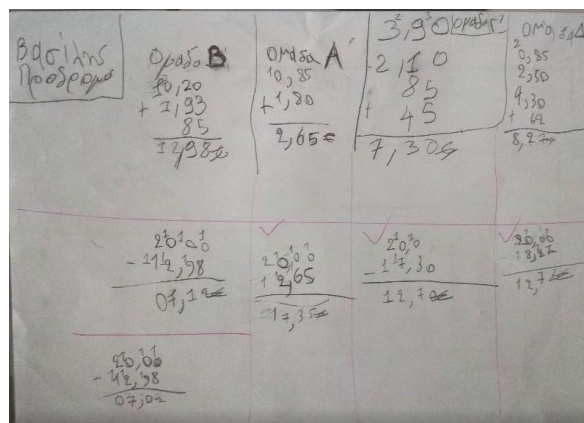 Βασίλης
Προδρομο
Ομαδα Β
10,20
+ 1,93
85
12,98€
Ομαδα Α
0,85
+1,80
2,65€
3,90
2,10
85
+ 45
7,30€
ομαδα Δ
0,85
2,50
4,30
+ 62
8,27€
20,00
- 12,98
07,12€
20,00
- 2,65
17,35€
20,0
- 7,30
12,70€
20,00
- 8,27
12,73€
20,00
- 12,98
07,02